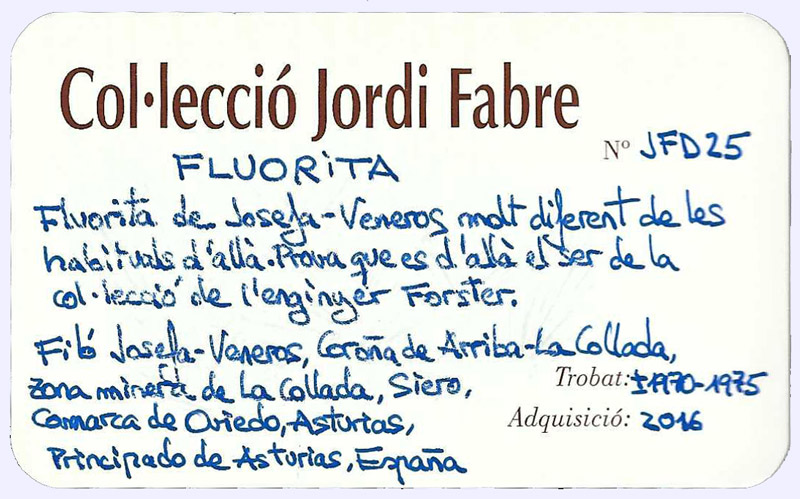 Col·lecció Jordi Fabre
Nº JFD25
FLUORITA
Fluorita de Josefa-Veneros molt diferent de les
habituals d'allà. Prova que es d'allà el ser de la
col·lecció de l'enginyer Forster.
Filó Josefa-Veneros, Coroña de Arriba-La Collada,
zona minera de La Collada, Siero,
Trobat: ±1970-1975
Comarca de Oviedo, Asturias,
Adquisició: 2016
Principado de Asturias, España